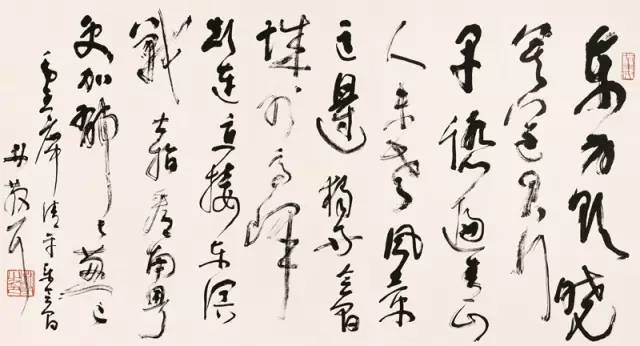 东方欲曉
莫道君行
早踏遍青山
人未老风景
这邊独好会昌
城外高峰
颠连直接东溟
戰士指看南粤
更加郁々葱々
毛主席清平乐会昌
林散耳